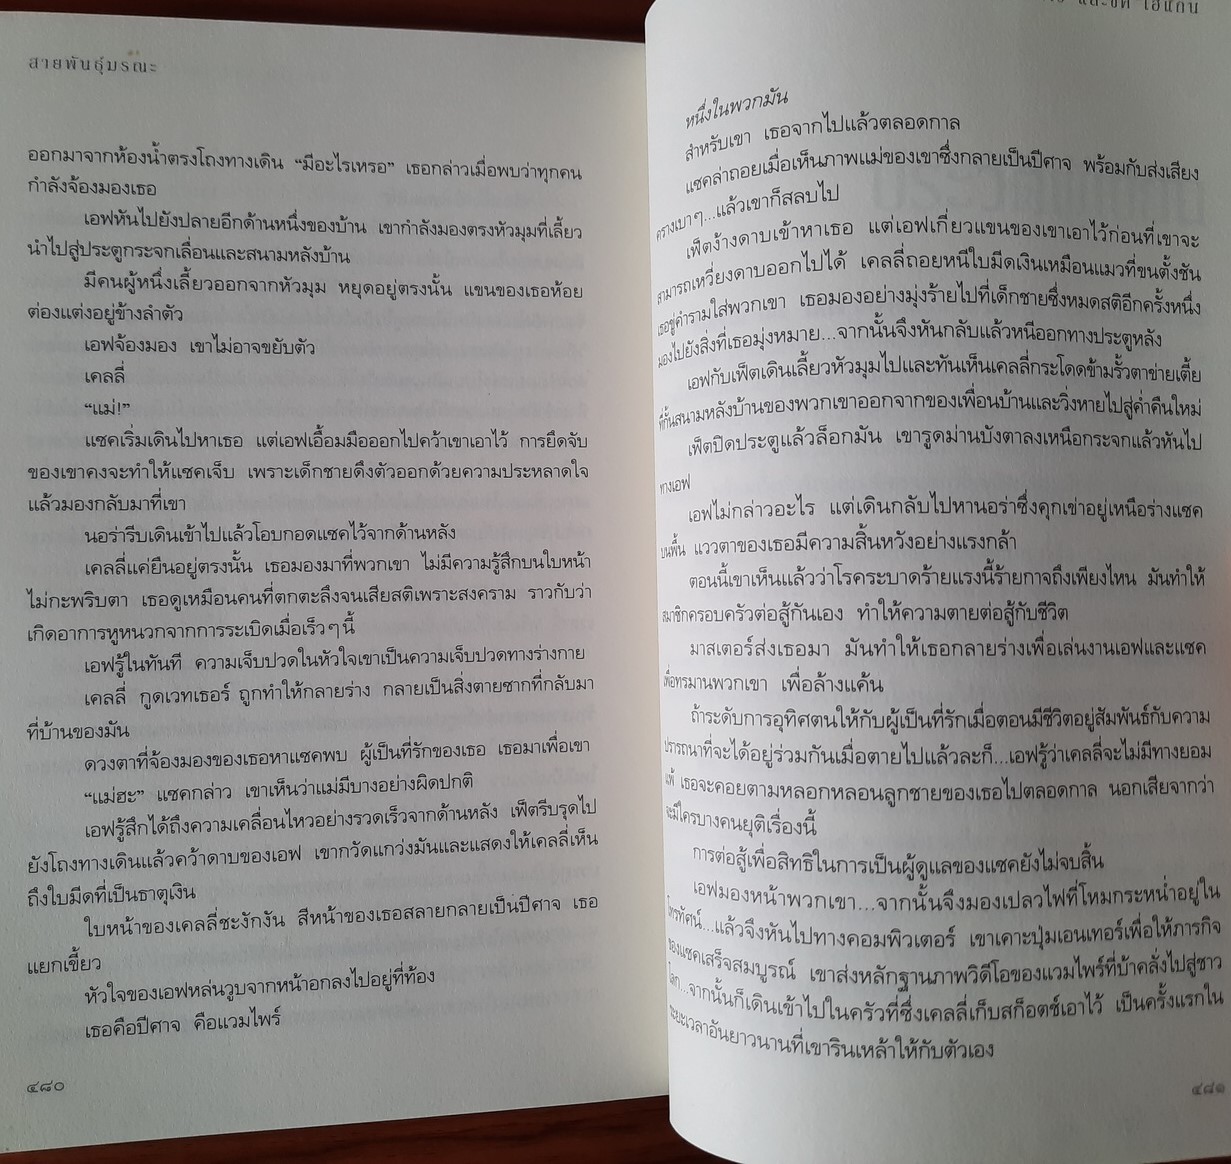 สายพันธุ์มรณะ
ออกมาจากห้องน้ำตรงโถงทางเดิน “มีอะไรเหรอ” เธอกล่าวเมื่อพบว่าทุกคน
กำลังจ้องมองเธอ
เอฟหันไปยังปลายอีกด้านหนึ่งของบ้าน เขากำลังมองตรงหัวมุมที่เลี้ยว
นำไปสู่ประตูกระจกเลื่อนและสนามหลังบ้าน
มีคนผู้หนึ่งเลี้ยวออกจากหัวมุม หยุดอยู่ตรงนั้น แขนของเธอห้อย
ต่องแต่งอยู่ข้างลำตัว
เอฟจ้องมอง เขาไม่อาจขยับตัว
เคลลี่
“แม่!”
แซคเริ่มเดินไปหาเธอ แต่เอฟเอื้อมมือออกไปคว้าเขาเอาไว้ การยึดจับ
ของเขาคงจะทำให้แซคเจ็บ เพราะเด็กชายดึงตัวออกด้วยความประหลาดใจ
แล้วมองกลับมาที่เขา
นอร่ารีบเดินเข้าไปแล้วโอบกอดแซคไว้จากด้านหลัง
เคลลี่แค่ยืนอยู่ตรงนั้น เธอมองมาที่พวกเขา ไม่มีความรู้สึกบนใบหน้า
ไม่กะพริบตา เธอดูเหมือนคนที่ตกตะลึงจนเสียสติเพราะสงคราม ราวกับว่า
เกิดอาการหูหนวกจากการระเบิดเมื่อเร็วๆนี้
เอฟรู้ในทันที ความเจ็บปวดในหัวใจเขาเป็นความเจ็บปวดทางร่างกาย
เคลลี่ กูดเวทเธอร์ ถูกทำให้กลายร่าง กลายเป็นสิ่งตายซากที่กลับมา
ที่บ้านของมัน
ดวงตาที่จ้องมองของเธอหาแซคพบ ผู้เป็นที่รักของเธอ เธอมาเพื่อเขา
“แม่ฮะ” แซคกล่าว เขาเห็นว่าแม่มีบางอย่างผิดปกติ
เอฟรู้สึกได้ถึงความเคลื่อนไหวอย่างรวดเร็วจากด้านหลัง เฟ็ตรีบรุดไป
ยังโถงทางเดินแล้วคว้าดาบของเอฟ เขากวัดแกว่งมันและแสดงให้เคลลี่เห็น
ถึงใบมีดที่เป็นธาตุเงิน
ใบหน้าของเคลลี่ชะงักงัน สีหน้าของเธอสลายกลายเป็นปีศาจ เธอ
แยกเขี้ยว
หัวใจของเอฟหล่นวูบจากหน้าอกลงไปอยู่ที่ท้อง
เธอคือปีศาจ คือแวมไพร์
๔๘๐
หนึ่งในพวกมัน
สำหรับเขา เธอจากไปแล้วตลอดกาล
แซคล่าถอยเมื่อเห็นภาพแม่ของเขาซึ่งกลายเป็นปีศาจ พร้อมกับส่งเสียง
ครางเบาๆ...แล้วเขาก็สลบไป
เฟ็ตง้างดาบเข้าหาเธอ แต่เอฟเกี่ยวแขนของเขาเอาไว้ก่อนที่เขาจะ
สามารถเหวี่ยงดาบออกไปได้ เคลลี่ถอยหนีใบมีดเงินเหมือนแมวที่ขนตั้งชัน
เธอขู่คำรามใส่พวกเขา เธอมองอย่างมุ่งร้ายไปที่เด็กชายซึ่งหมดสติอีกครั้งหนึ่ง
มองไปยังสิ่งที่เธอมุ่งหมาย...จากนั้นจึงหันกลับแล้วหนีออกทางประตูหลัง
เอฟกับเฟ็ตเดินเลี้ยวหัวมุมไปและทันเห็นเคลลี่กระโดดข้ามรั้วตาข่ายเตี้ย
ที่กั้นสนามหลังบ้านของพวกเขาออกจากของเพื่อนบ้านและวิ่งหายไปสู่ค่ำคืนใหม่
เฟ็ตปิดประตูแล้วล็อกมัน เขารูดม่านบังตาลงเหนือกระจกแล้วหันไป
ทางเอฟ
เอฟไม่กล่าวอะไร แต่เดินกลับไปหานอร่าซึ่งคุกเข่าอยู่เหนือร่างแซค
บนพื้น แววตาของเธอมีความสิ้นหวังอย่างแรงกล้า
ตอนนี้เขาเห็นแล้วว่าโรคระบาดร้ายแรงนี้ร้ายกาจถึงเพียงไหน มันทำให้
สมาชิกครอบครัวต่อสู้กันเอง ทำให้ความตายต่อสู้กับชีวิต
มาสเตอร์ส่งเธอมา มันทำให้เธอกลายร่างเพื่อเล่นงานเอฟและแซค
เพื่อทรมานพวกเขา เพื่อล้างแค้น
ถ้าระดับการอุทิศตนให้กับผู้เป็นที่รักเมื่อตอนมีชีวิตอยู่สัมพันธ์กับความ
ปรารถนาที่จะได้อยู่ร่วมกันเมื่อตายไปแล้วละก็...เอฟรู้ว่าเคลลี่จะไม่มีทางยอม
แพ้ เธอจะคอยตามหลอกหลอนลูกชายของเธอไปตลอดกาล นอกเสียจากว่า
จะมีใครบางคนยุติเรื่องนี้
การต่อสู้เพื่อสิทธิในการเป็นผู้ดูแลของแซคยังไม่จบสิ้น
เอฟมองหน้าพวกเขา...จากนั้นจึงมองเปลวไฟที่โหมกระหน่ำอยู่ใน
โทรทัศน์...แล้วจึงหันไปทางคอมพิวเตอร์ เขาเคาะปุ่มเอนเทอร์เพื่อให้ภารกิจ
ของแซคเสร็จสมบูรณ์ เขาส่งหลักฐานภาพวิดีโอของแวมไพร์ที่บ้าคลั่งไปสู่ชาว
โลก...จากนั้นก็เดินเข้าไปในครัวที่ซึ่งเคลลี่เก็บสก็อตช์เอาไว้ เป็นครั้งแรกใน
ระยะเวลาอันยาวนานที่เขารินเหล้าให้กับตัวเอง
๔๘๑